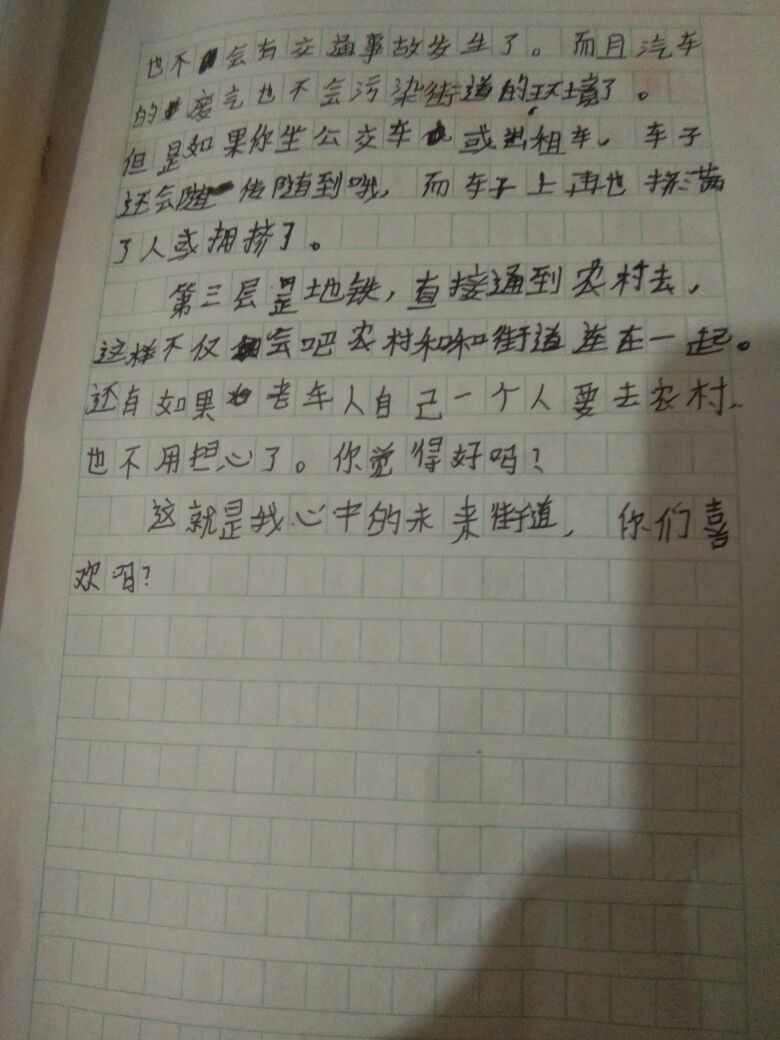 也不会有交通事故发生了。而且汽车
的废气也不会污染街道的环境了。
但是如果你坐公交车或出租车。车子
还会随传随到哦，而车子上再也挤满
了人或拥挤了。
第三层是地铁，直接通到农村去，
这样不仅会吧农村和和街道连在一起。
还有如果老年人自己一个人要去农村，
也不用担心了。你觉得好吗？
这就是我心中的未来街道，你们喜
欢吗？